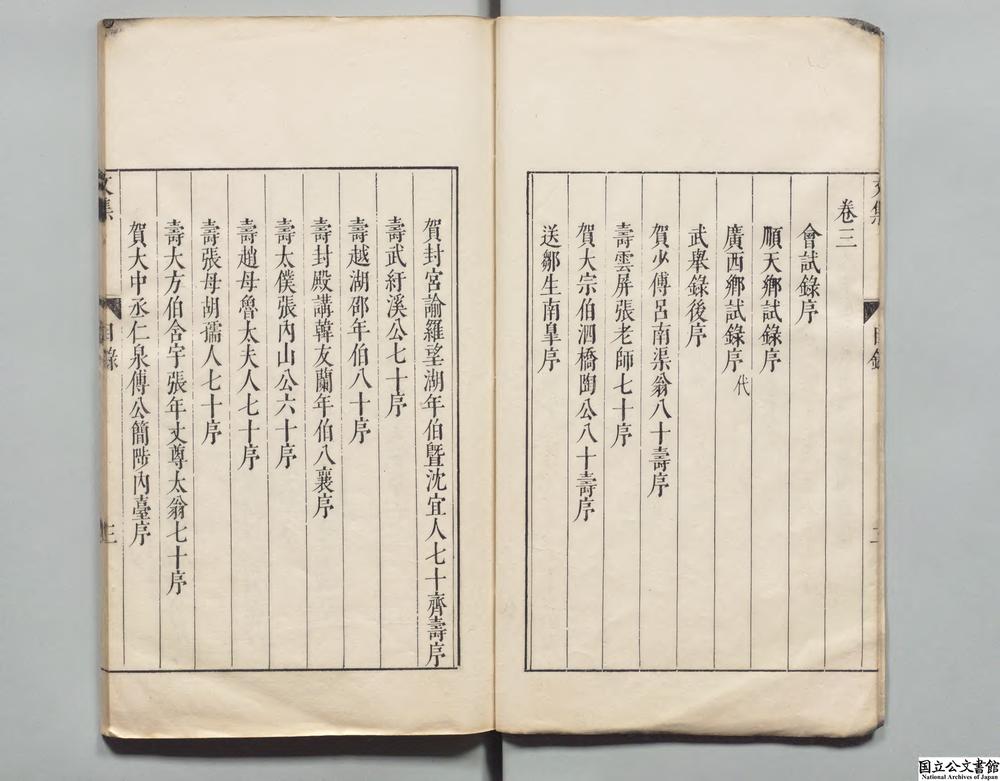 卷三
會試錄序
順天鄉試錄序
廣西鄉試錄序代
武舉錄後序
賀少傅呂南渠翁八十壽序
壽雲屏張老師七十序
賀大宗伯泗橋陶公八十壽序
送鄒生南皐序
賀封宮諭羅望湖年伯暨沈宜人七十齊壽序
壽武紆溪公七十序
壽越湖邵年伯八十序
壽封殿講韓友蘭年伯八襄序
壽太僕張內山公六十序
壽趙母魯太夫人七十序
壽張母胡孺人七十序
壽大方伯含宇張年丈尊太翁七十序
賀大中丞仁泉傅公簡陟內臺序
文集
目錄
三
国立公文書館
National Archives of Japan